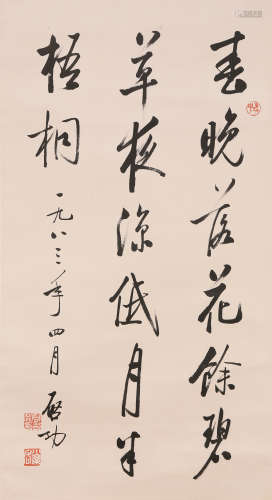 春晚落花餘碧
草夜涼低月半
梧桐
一九八三年四月 啟功